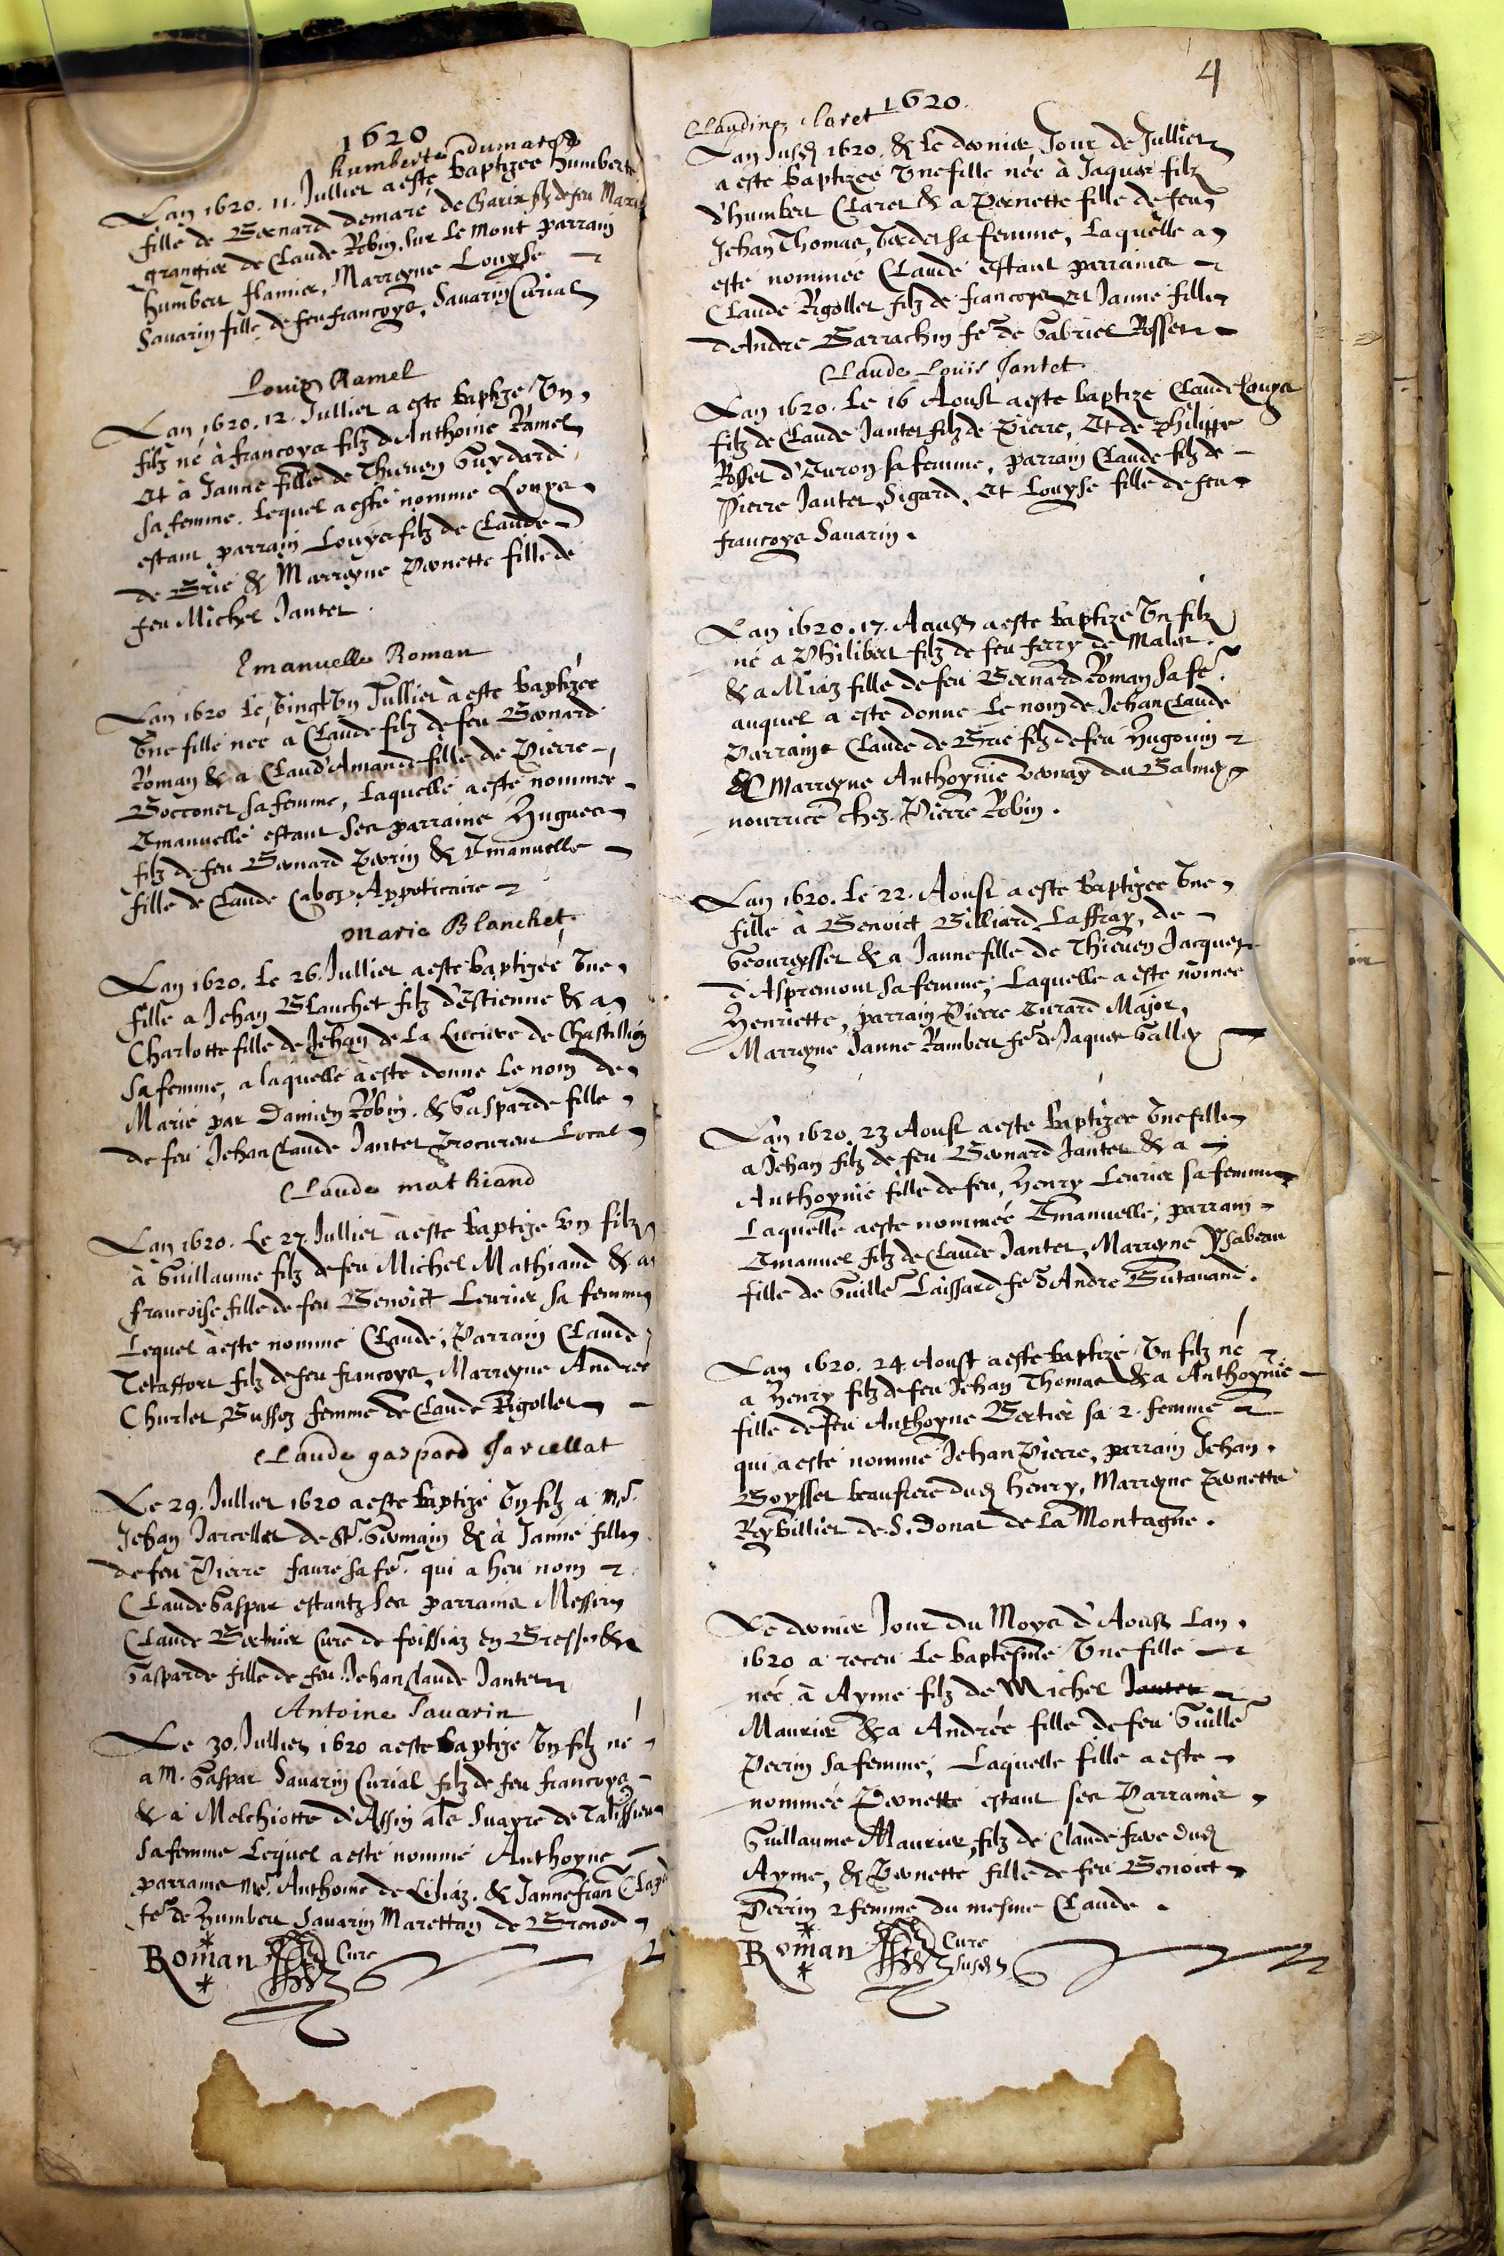 1620
humberte dumares
Lan 1620. 11. Jullier a esté baptizee humberte
fille de Bernard demare de Garix filz de feu
grangier de Claude Robin, sur le mont parrain
humbert flamier, Marreyne Louyse
Savarin fille de feu francoys Savarin Curial
Louis Ramel
Lan 1620. 12. Jullier a esté baptizé Un
filz né à francoys filz d'Anthoine Ramel
Et à Janne fille de Thieven Guydard
sa femme. lequel a esté nommé Louys
estant parrain Louys filz de Claude
de Brie & Marreyne Pernette fille de
feu Michel Jantet.
Emanuelle Roman
Lan 1620 le vingt Un Jullier a esté baptizée
Une fille née a Claude filz de feu Bernard
Roman & a Claud'Amande fille de Pierre
Borronet sa femme, laquelle a esté nommée
Emanuelle estant ses parrains Hugues
filz de feu Bernard Perrin & Emanuelle
fille de Claude Appoticaire
Marie Blanchet
Lan 1620. Le 26. Jullier a esté baptizée Une
fille a Jehan Blanchet filz d'Estienne & a
Charlotte fille de Jehan de La de Chastillion
sa femme, a laquelle a esté donné le nom de
Marie par Damien Robin. & Gasparde fille
de feu Jehan Claude Jantet Procureur Local
Claude mathiand
Lan 1620. Le 27. Jullier a esté baptizé Un filz
à Guillaume filz de feu Michel Mathiand & a
francoise fille de feu Benoict Leurier sa femme
Lequel a esté nommé Claude, Parrain Claude
Tetaffort filz de feu francoys, Marreyne Andrée
Churlet Bussoz femme de Claude Rigollet
Claude gaspard Jarcellat
Le 29. Jullier 1620 a esté baptizé Un filz a Me.
Jehan Jarcellet de St. Germain & à Janne fille
de feu Pierre faure sa fe. qui a heu nom
Claude Gaspar estantz ses parrains Messire
Claude Berthier Curé de foissiaz en Bresse &
Gasparde fille de feu Jehan Claude Jantet
Antoine Savarin
Le 30. Jullier 1620 a esté baptizé Un filz né
a M. Gaspar Savarin Curial filz de feu francoys
& a Melchiotte d'Assin als Suayre de Talissieu
sa femme Lequel a esté nommé Anthoyne
parrains Me. Anthoine de Lihaz. & Janne fran
fe. de Humbert Savarin Marettan de Brenod
Roman Curé
4
1620.
Claudine Claret
Lan susd 1620. & le dernier Jour de Jullier
a esté baptizée Une fille née à Jaques filz
d'humbert Claret & a Pernette fille de feu
Jehan Thomas, Verdet sa femme, Laquelle a
esté nommée Claude Estant parrains
Claude Rigollet filz de francoys et Janne fille
d'Andre Garrachin fe. de Gabriel Rosset
Claude Louis Jantet
Lan 1620. Le 16 Aoust a esté baptizé Claude Louys
filz de Claude Jantet filz de Pierre, Et de Philippe
Rosset d'Euron sa femme, parrain Claude filz de
Pierre Jantet Sigard, Et Louyse fille de feu
francoys Savarin.
Lan 1620. 17. Aoust a esté baptizé Un filz
né a Philibert filz de feu ferry de Malet.
& a Miaz fille de feu Bernard Roman sa fe.
auquel a esté donné le nom de Jehan Claude
Parrains Claude de Brie filz de feu Hugonin
& Marreyne Anthoynie Vernay du Balmey
nourrice chez Pierre Robin.
Lan 1620. Le 22. Aoust a esté baptizée Une
fille à Benoict Billiard Laffray, de
Geoureysset & a Janne fille de Thieven Jacques
d'Aspremont sa femme, Laquelle a esté nommée
Henriette, parrain Pierre Turard Major,
Marreyne Janne Rambert fe. de Jaques Galley
Lan 1620. 23 Aoust a esté baptizée Une fille
a Jehan filz de feu Bernard Jantet & a
Anthoynie fille de feu, Henry Leurier sa femme
Laquelle a esté nommée Emanuelle, parrain
Emanuel filz de Claude Jantet, Marreyne Ysabeau
fille de Guille. Laissard fe. d'Andre Butavand.
Lan 1620. 24. Aoust a esté baptizé Un filz né
a Henry filz de feu Jehan Thomas & a Anthoynie
fille de feu Anthoyne Bertier sa 2. femme
qui a esté nommé Jehan Pierre, parrain Jehan
Boysset beaufrere dud Henry, Marreyne Pernette
Reybillier de S. Donat de la Montagne.
Le dernier Jour du Moys d'Aoust Lan
1620 a receu le baptesme Une fille
née à Ayme filz de Michel Jantet
Maurier & a Andrée fille de feu Guille.
Perrin sa femme, Laquelle fille a esté
nommée Pernette estant ses Parrains
Guillaume Maurier, filz de Claude frere dud
Ayme, & Pernette fille de feu Benoict
Perrin 2 femme du mesme Claude.
Roman Curé
susd